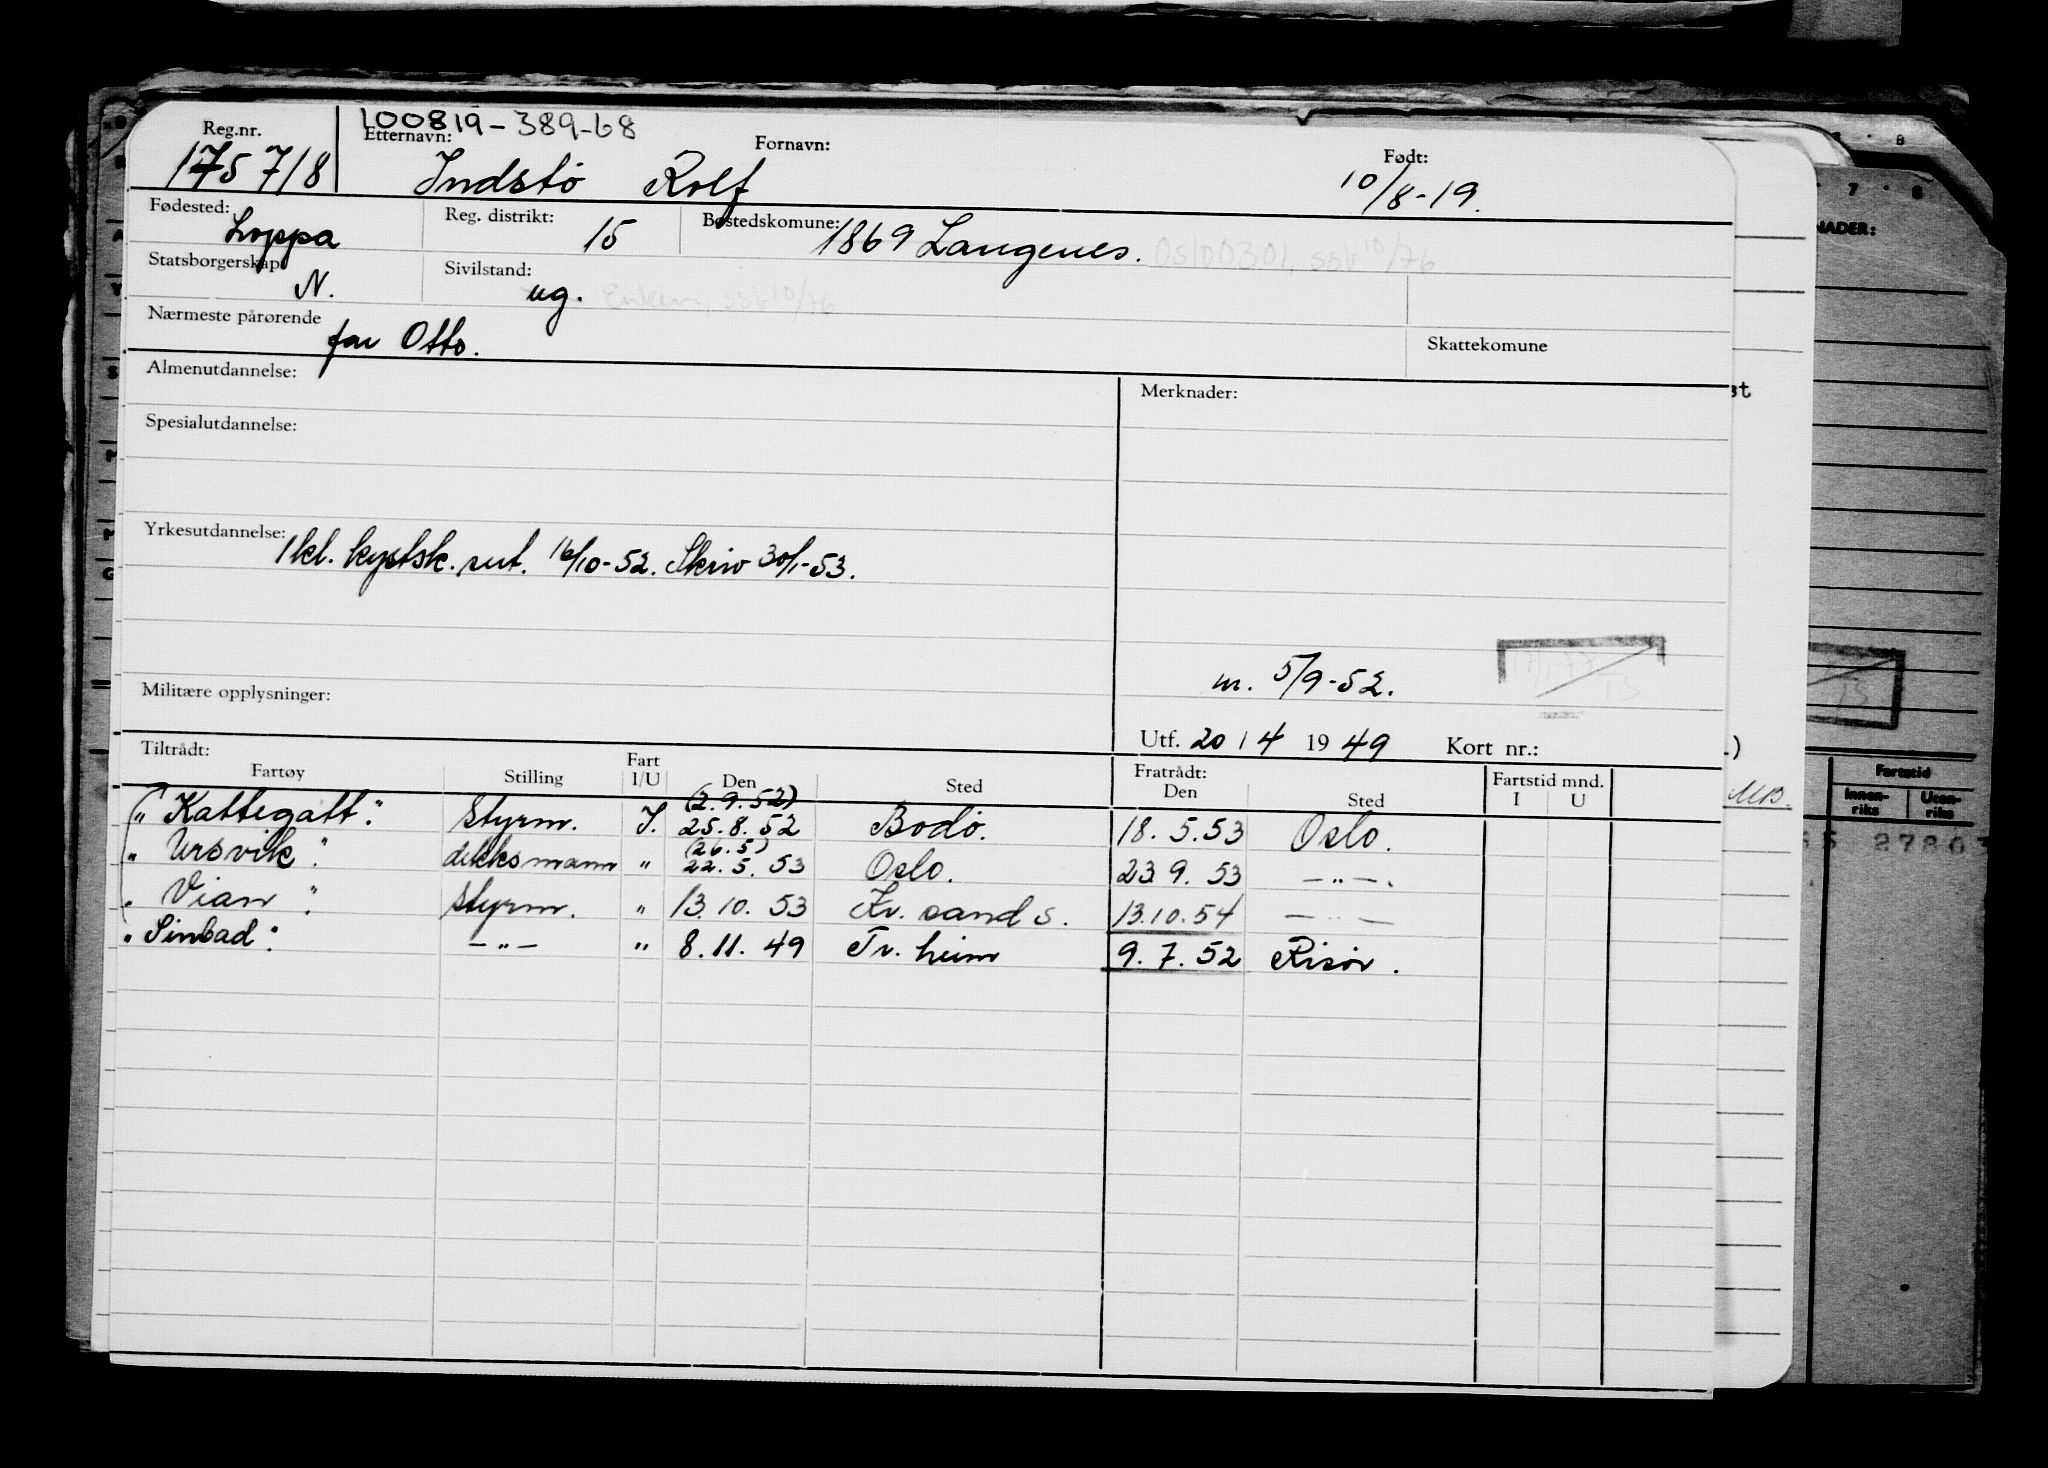 100819-389-68
Reg.nr. Etternavn: Fornavn: Født:
175718 Indstö Rolf 10/8-19.
Fødested: Loppa Reg. distrikt: 15 Bostedskomune: 1869 Langenes. Oslo 0301, ssb 10/76
Statsborgerskap N. Sivilstand: ug. Enkem, ssb 10/76
Nærmeste pårørende far Otto. Skattekomune
Almenutdannelse: Merknader:
Spesialutdannelse:
Yrkesutdannelse: 1 kl. kystsk. sert. 16/10-52. Skriv 30/1-53.
m. 5/9-52.
Militære opplysninger:
Utf. 20/4 1949 Kort nr.:
Tiltrådt: Fratrådt: Fartstid mnd.
Fartøy Stilling Fart I/U Den Sted Den Sted I U
"Kattegatt". Styrm. I. (2.9.52) 25.8.52 Bodö. 18.5.53 Oslo.
"Ursvik". dekksmann " (26.5) 22.5.53 Oslo. 23.9.53 — " —.
"Vian". styrm. " 13.10.53 Kr. sand s. 13.10.54 — " —
"Sinbad". — " — " 8.11.49 Tr. heim 9.7.52 Risör.
NADER:
7 · 8
st
TS
Fartstid
Innen-riks Uten-riks
27803